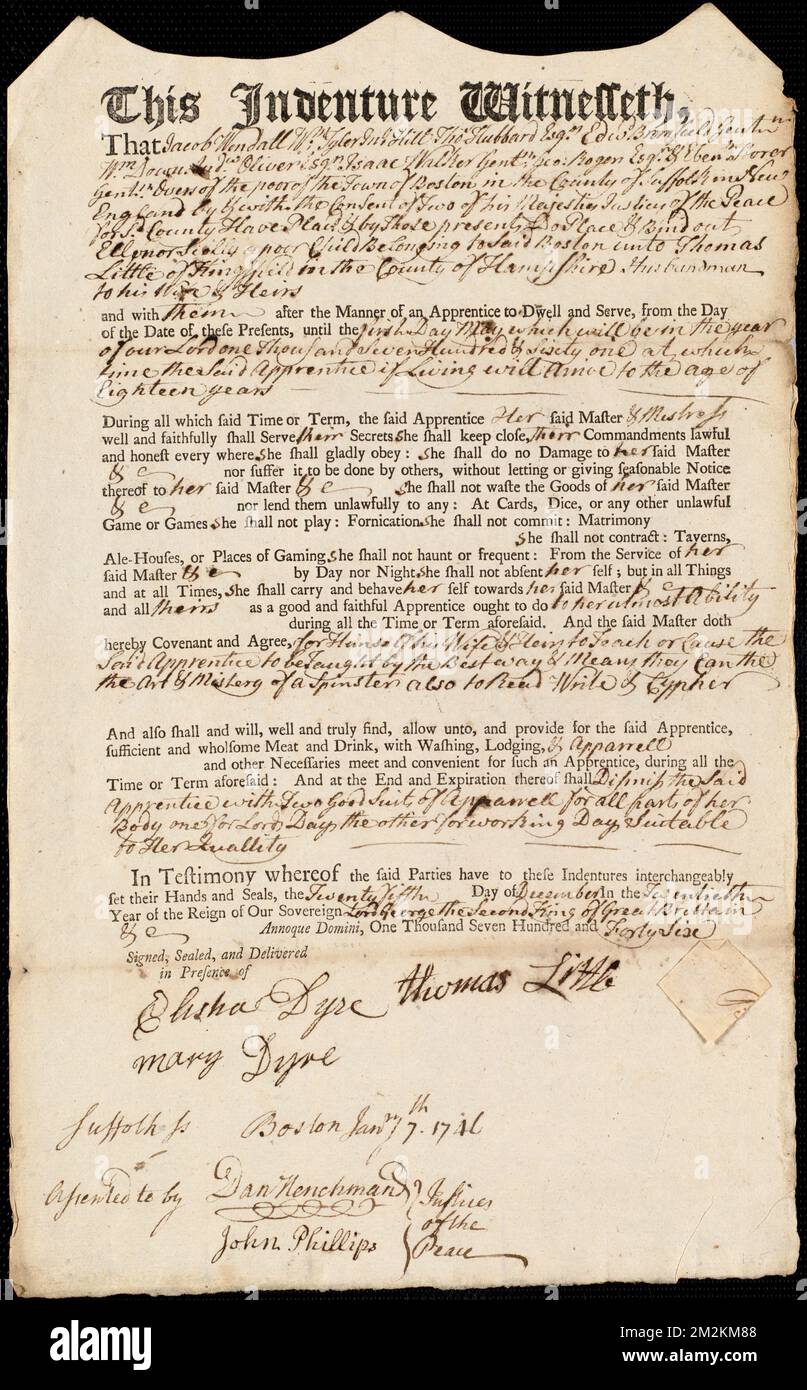 This Indenture Witnesseth,
That Jacob Wendall Wm Tyler Jno Hill Thos Hubbard Esqrs Edwd Bromfield Gentn
Wm Down Andw Oliver Esqrs Isaac Walker Gentn Geo: Rogers Esqr & Ebenr Storer
Gentn Overs of the poor of the Town of Boston in the County of Suffolk in New
England by & with the Consent of Two of his Majesties Justices of the Peace
for Sd County Have Placd & by Those presents Do Place & Bind out
Ellonor a poor Child Belonging to Said Boston unto Thomas
Little of in the County of Hampshire Husbandman
to his Wife & Heirs
and with them after the Manner of an Apprentice to Dwell and Serve, from the Day
of the Date of these Presents, until the first Day May which will be in the year
of our Lord one Thousand Seven Hundred & Sixty one at which
time the Said Apprentice if Living will arive to the age of
Eighteen years
During all which said Time or Term, the said Apprentice Her said Master & Mistress
well and faithfully shall Serve their Secrets she shall keep close, their Commandments lawful
and honest every where she shall gladly obey: she shall do no Damage to her said Master
& c nor suffer it to be done by others, without letting or giving seasonable Notice
thereof to her said Master & c she shall not waste the Goods of her said Master
& c nor lend them unlawfully to any: At Cards, Dice, or any other unlawful
Game or Games she shall not play: Fornication she shall not commit: Matrimony
she shall not contract: Taverns,
Ale-Houses, or Places of Gaming, she shall not haunt or frequent: From the Service of her
said Master & c by Day nor Night she shall not absent her self; but in all Things
and at all Times, she shall carry and behave her self towards her said Master & c
and all theirs as a good and faithful Apprentice ought to do to her utmost Ability
during all the Time or Term aforesaid. And the said Master doth
hereby Covenant and Agree, for Himself his Wife & Heirs to Teach or Cause the
Said Apprentice to be Taught by the Best way & Means they Can the
the Art & Mistery of a Spinster also to Read Write & Cypher
And also shall and will, well and truly find, allow unto, and provide for the said Apprentice,
sufficient and wholsome Meat and Drink, with Washing, Lodging, & Apparrell
and other Necessaries meet and convenient for such an Apprentice, during all the
Time or Term aforesaid: And at the End and Expiration thereof shall Dismiss the Said
Apprentice with Two Good Suits of Apparrell for all parts of her
Body one for Lords Days the other for working Days Suitable
to Her Quallity
In Testimony whereof the said Parties have to these Indentures interchangeably
set their Hands and Seals, the Twenty fifth Day of December In the Twentieth
Year of the Reign of Our Sovereign Lord George the Second King of Great Brittain
& c Annoque Domini, One Thousand Seven Hundred and Forty Six
Signed, Sealed, and Delivered
in Presence of
Elisha Dyre thomas Little
mary Dyre
Suffolk ss Boston Janry 7th 1746
Assented to by Dan Henchman } Justices
of the
John Phillips } Peace
alamy
Image ID: 2M2KM88
www.alamy.com